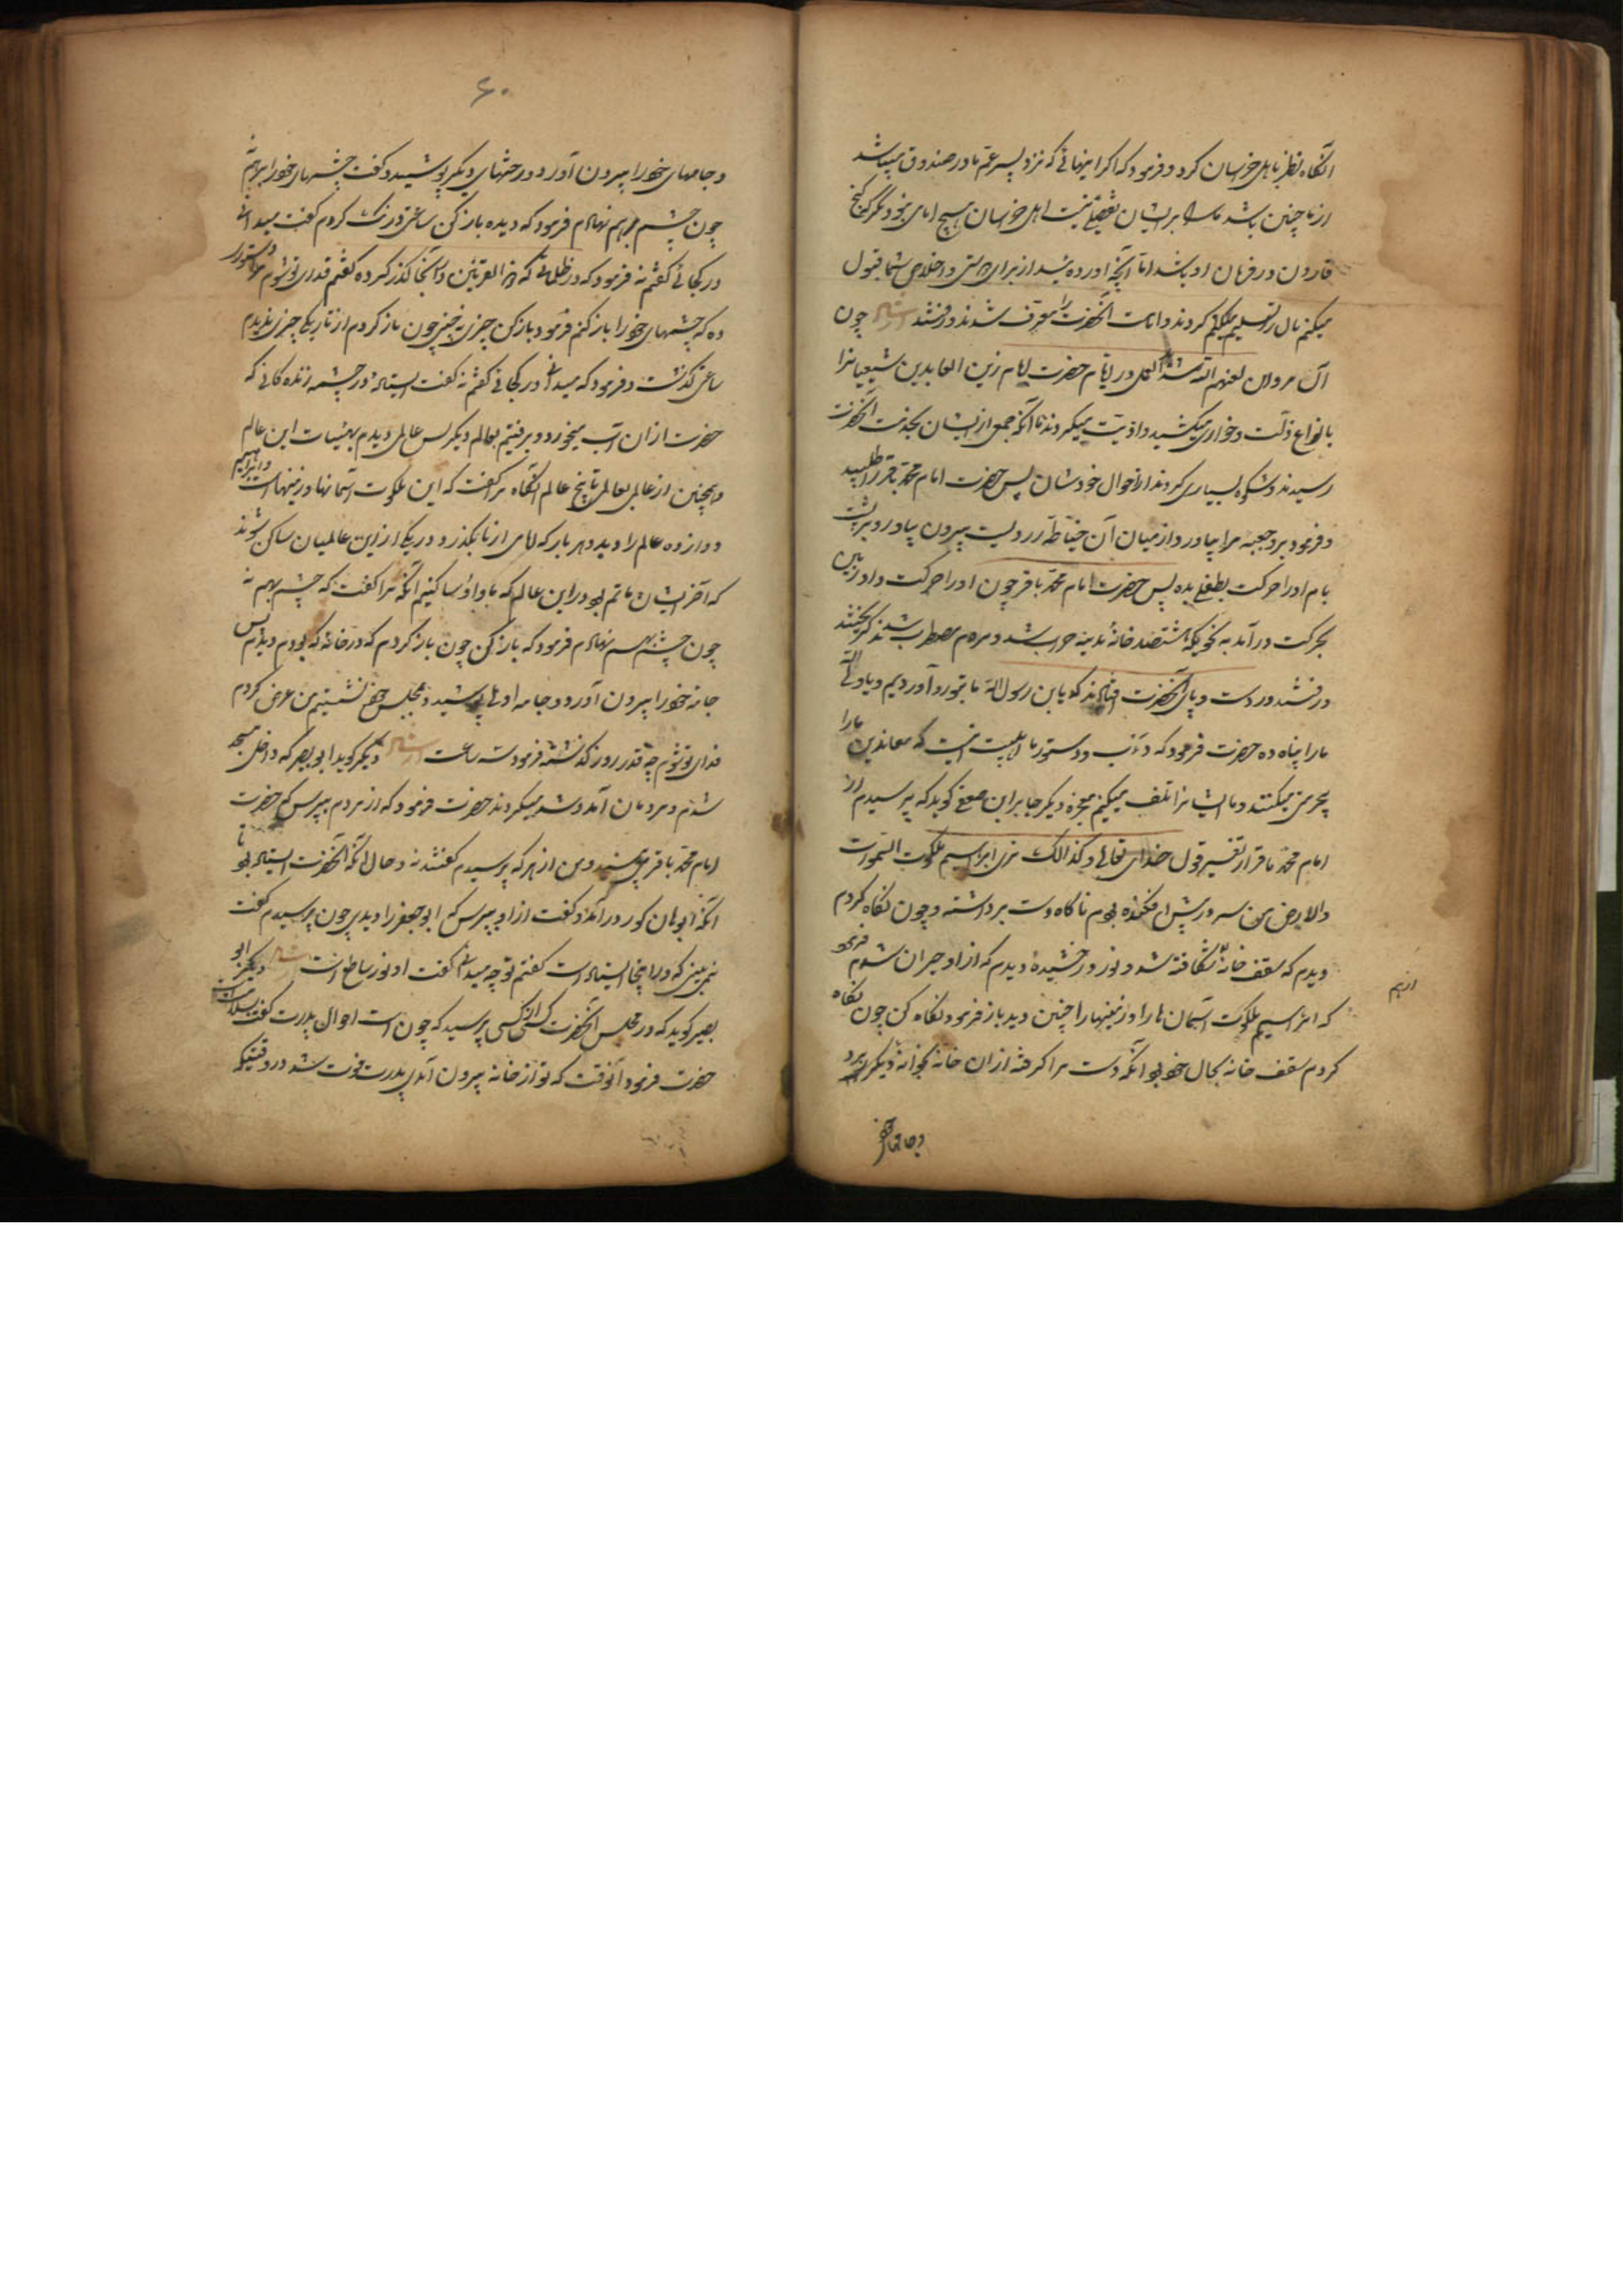 انگاه نظر باهل خراسان کرد و فرمود که اگر اینهائی که نزد پسر عم ما در صندوق میباشد
از ما چنین باشد ما را بر ایشان تفضلی نیست اهل خراسان هیچ امامی نبود مگر گنج
قارون در فرمان او باشد اما آنچه آورده‌اید از برای درستی و اخلاص شما قبول
میکنم مال را تسلیم کردند و امامت آنحضرت را معترف شدند و رفتند چون
آل مروان لعنهم الله در ایام حضرت امام زین العابدین شیعیانرا
بانواع ذلت و خواری میکشید و اذیت میکردند تا آنکه جمعی از ایشان بخدمت آنحضرت
رسیدند و شکوه بسیاری کردند از احوال خودشان پس حضرت امام محمد باقر را طلبید
و فرمود برو جعبه مرا بیاور و از میان آن خیاطه زردیست بیرون بیاور و بر پشت
بام او را حرکت بطفلی بده پس حضرت امام محمد باقر چون او را حرکت داد زمین
بحرکت درآمد به نحویکه هشتصد خانهٔ مدینه خراب شد و مردم مضطرب شدند گریختند
و رفتند در دست و پای آنحضرت افتادند که یابن رسول الله ما بتو رو آوردیم
ما را پناه ده حضرت فرمود که دآب و دستور ما اهلبیت اینست که معاندین ما را
بیحرمتی میکنند و ما ایشانرا تلف میکنیم معجزه دیگر جابر ابن جعفی گوید که پرسیدم از
امام محمد باقر از تفسیر قول خدای تعالی و کذالک نری ابراهیم ملکوت السموات
والارض من سر در پیش افکنده بودم ناگاه دست برداشته و چون نگاه کردم
دیدم که سقف خانه شکافته شد و نور درخشیدهٔ دیدم که از او حیران شدم فرمود
که ابراهیم ملکوت آسمان ها را و زمینها را چنین دید باز فرمود نگاه کن چون نگاه
کردم سقف خانه بحال خود بود آنگه دست مرا گرفته از آن خانه بخانهٔ دیگر برد
و جامهای خود
۶۰
و جامهای خود را بیرون آورد و رختهای دیگر پوشید و گفت چشمهای خود را بر هم نه
چون چشم بر هم نهادم فرمود که دیده باز مکن ساعتی درنگ کردم گفت میدانی
در کجائی گفتم نه فرمود که در ظلماتی که ذو القرنین در آنجا گذر کرده گفتم فدای تو شوم دستور
ده که چشمهای خود را باز کنم فرمود باز کن چیزی نبینی چون باز کردم از تاریکی چیزی ندیدم
ساعتی گذشت و فرمود که میدانی در کجائی گفتم نه گفت ایستادهٔ در چشمه زندگانی که
حضرت از آن آب میخورد و برفتیم بعالم دیگر پس عالمی دیدم بهیئات این عالم
و همچنین از عالمی بعالمی تا پنج عالم آنگاه مرا گفت که این ملکوت آسمانها و زمینهاست و ابراهیم
دوازده عالم را دید و هر بار که امامی از ما بگذرد در یکی از این عالمیان ساکن شوند
که آخر ایشان قائم بود در این عالم که ما در او ساکنیم آنگه مرا گفت که چشم بر هم نه
چون چشم بر هم نهادم فرمود که باز کن چون باز کردم که در خانهٔ که بودم دیدم پس
جامه خود را بیرون آورد و جامه اولی را پوشید و بمجلس خود نشستیم من عرض کردم
فدای تو شوم چه قدر روز گذشته فرمود سه ساعت دیگر گوید ابو بصیر که داخل مسجد
شدم و مردمان آمد و شد میکردند حضرت فرمود که از مردم بپرس که حضرت
امام محمد باقر را می‌بینند و من از هر که پرسیدم گفتند نه و حال آنکه آنحضرت ایستاده بود تا
آنکه ابو هارون کور در آمد و گفت از او بپرس که ابو جعفر را دیدی چون پرسیدم گفت
نمی‌بینی که در اینجا ایستاده است گفتم تو چه میدانی گفت او نور ساطع است دیگر ابو
بصیر گوید که در مجلس آنحضرت از کسی پرسید که چون است احوال پدرت گفت بسلامت
حضرت فرمود آنوقت که تو از خانه بیرون آمدی پدرت فوت شد در وقتیکه